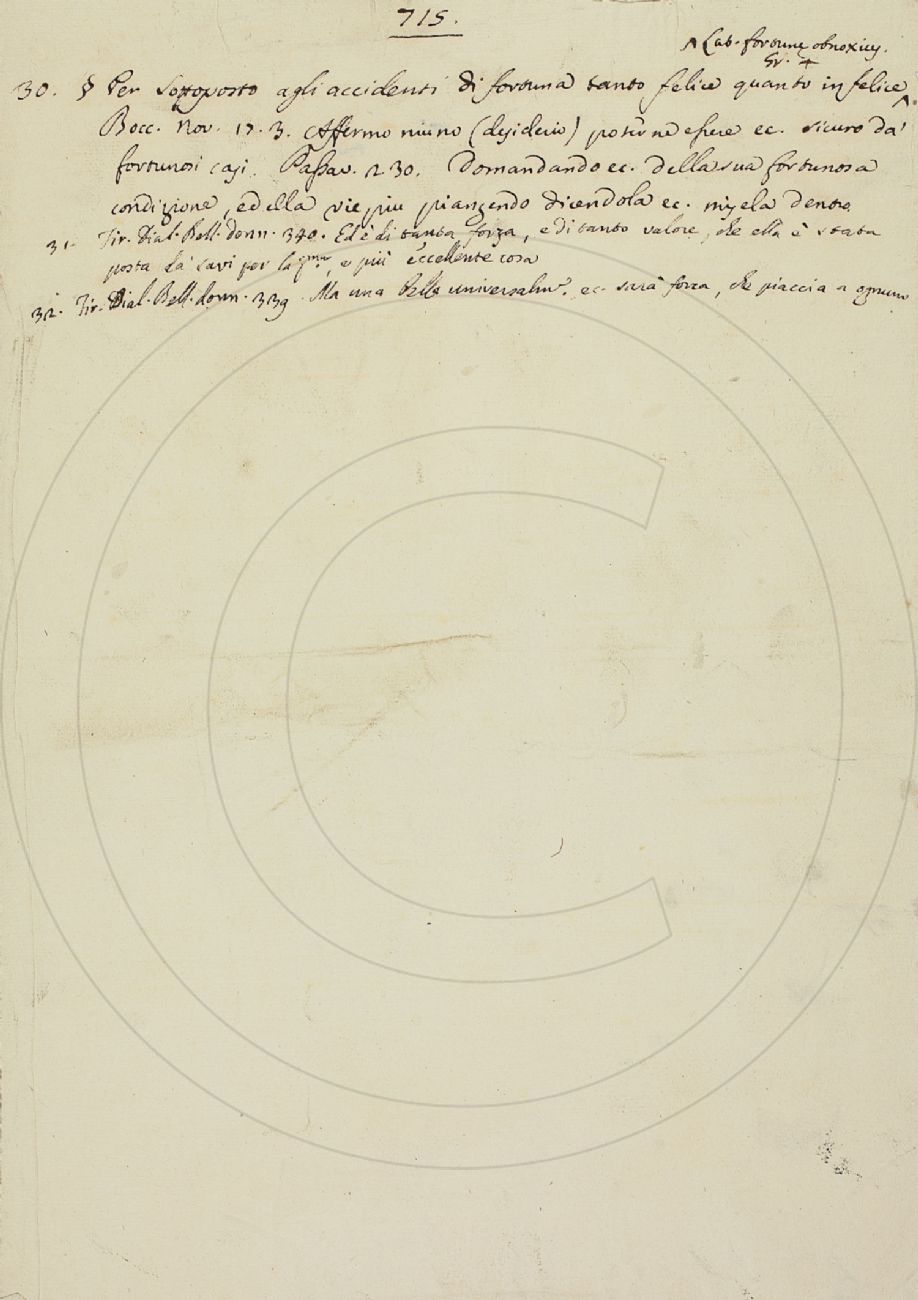 715.
^ Lat. fortunę obnoxius.
Gr. +
30. § Per Sottoposto agli accidenti di fortuna tanto felice quanto infelice ^.
Bocc. Nov. 17. 3. Affermo niuno (desiderio) poterne essere ec. sicuro da'
fortunosi casi. Passav. 230. Domandando ec. della sua fortunosa
condizione, ed ella vie più piangendo dicendola ec. misela dentro
31. Fir. Dial. Bell. donn. 340. Ed è di tanta forza, e di tanto valore, che ella è stata
posta da' savi per la pma, e più eccellente cosa
32. Fir. Dial. Bell. donn. 339. Ma una bella universalmte. ec. sarà forza, che piaccia a ognuno